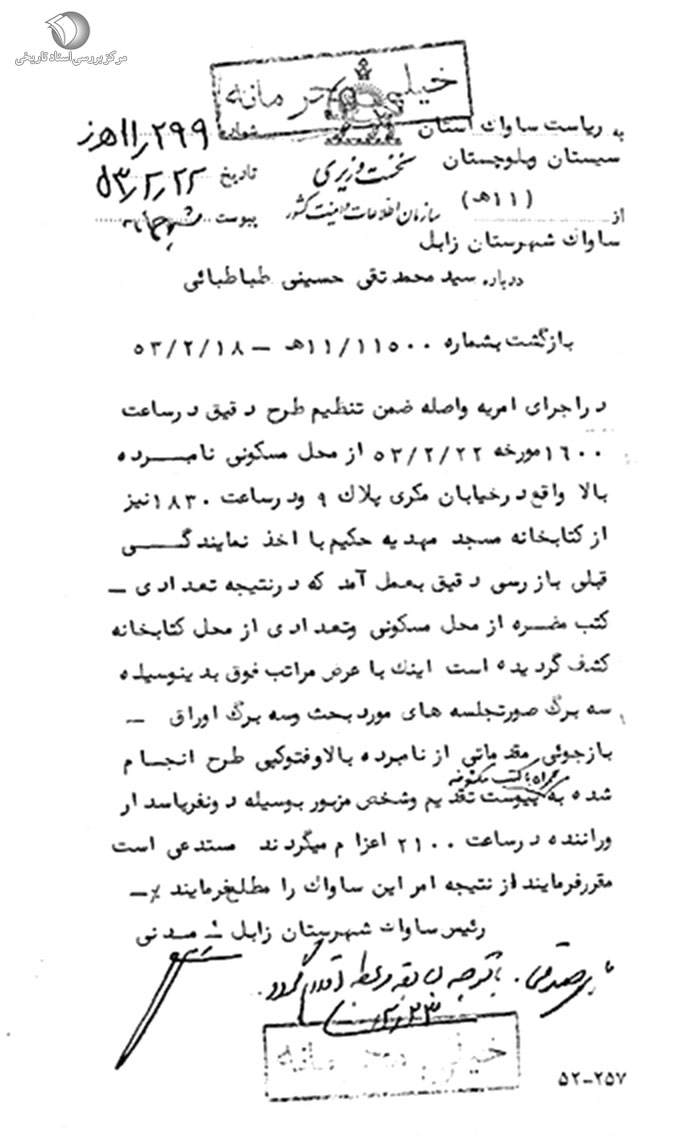 مرکز بررسی اسناد تاریخی
خیلی محرمانه
به ریاست ساواک استان سیستان وبلوچستان (۱۱هـ)
از ساواک شهرستان زابل
نخست وزیری
سازمان اطلاعات و امنیت کشور
شماره ۲۹۹/۱۱هز
تاریخ ۵۳/۲/۲۲
پیوست
درباره سید محمد تقی حسینی طباطبائی
بازگشت بشماره ۱۱۵۰۰/۱۱هـ – ۵۳/۲/۱۸
در اجرای امریه واصله ضمن تنظیم طرح دقیق در ساعت
۱۶۰۰ مورخه ۵۳/۲/۲۲ از محل مسکونی نامبرده
بالا واقع در خیابان مکری پلاک ۹ ودر ساعت ۱۸۳۰ نیز
از کتابخانه مسجد مهدیه حکیم با اخذ نمایندگی
قبلی بازرسی دقیق بعمل آمد که در نتیجه تعدادی –
کتب مضره از محل مسکونی وتعدادی از محل کتابخانه
کشف گردیده است اینک با عرض مراتب فوق بدینوسیله
سه برگ صورتجلسه های مورد بحث وسه برگ اوراق –
بازجوئی مقدماتی از نامبرده بالا وفتوکپی طرح انجام
همراه با کتب مکشوفه
شده به پیوست تقدیم وشخص مزبور بوسیله دونفر پاسدار
وراننده در ساعت ۲۱۰۰ اعزام میگردند مستدعی است
مقرر فرمایند از نتیجه امر این ساواک را مطلع فرمایند %–
رئیس ساواک شهرستان زابل – مدنی
با توجه
۲/۲۳
خیلی محرمانه
۵۲-۲۵۷